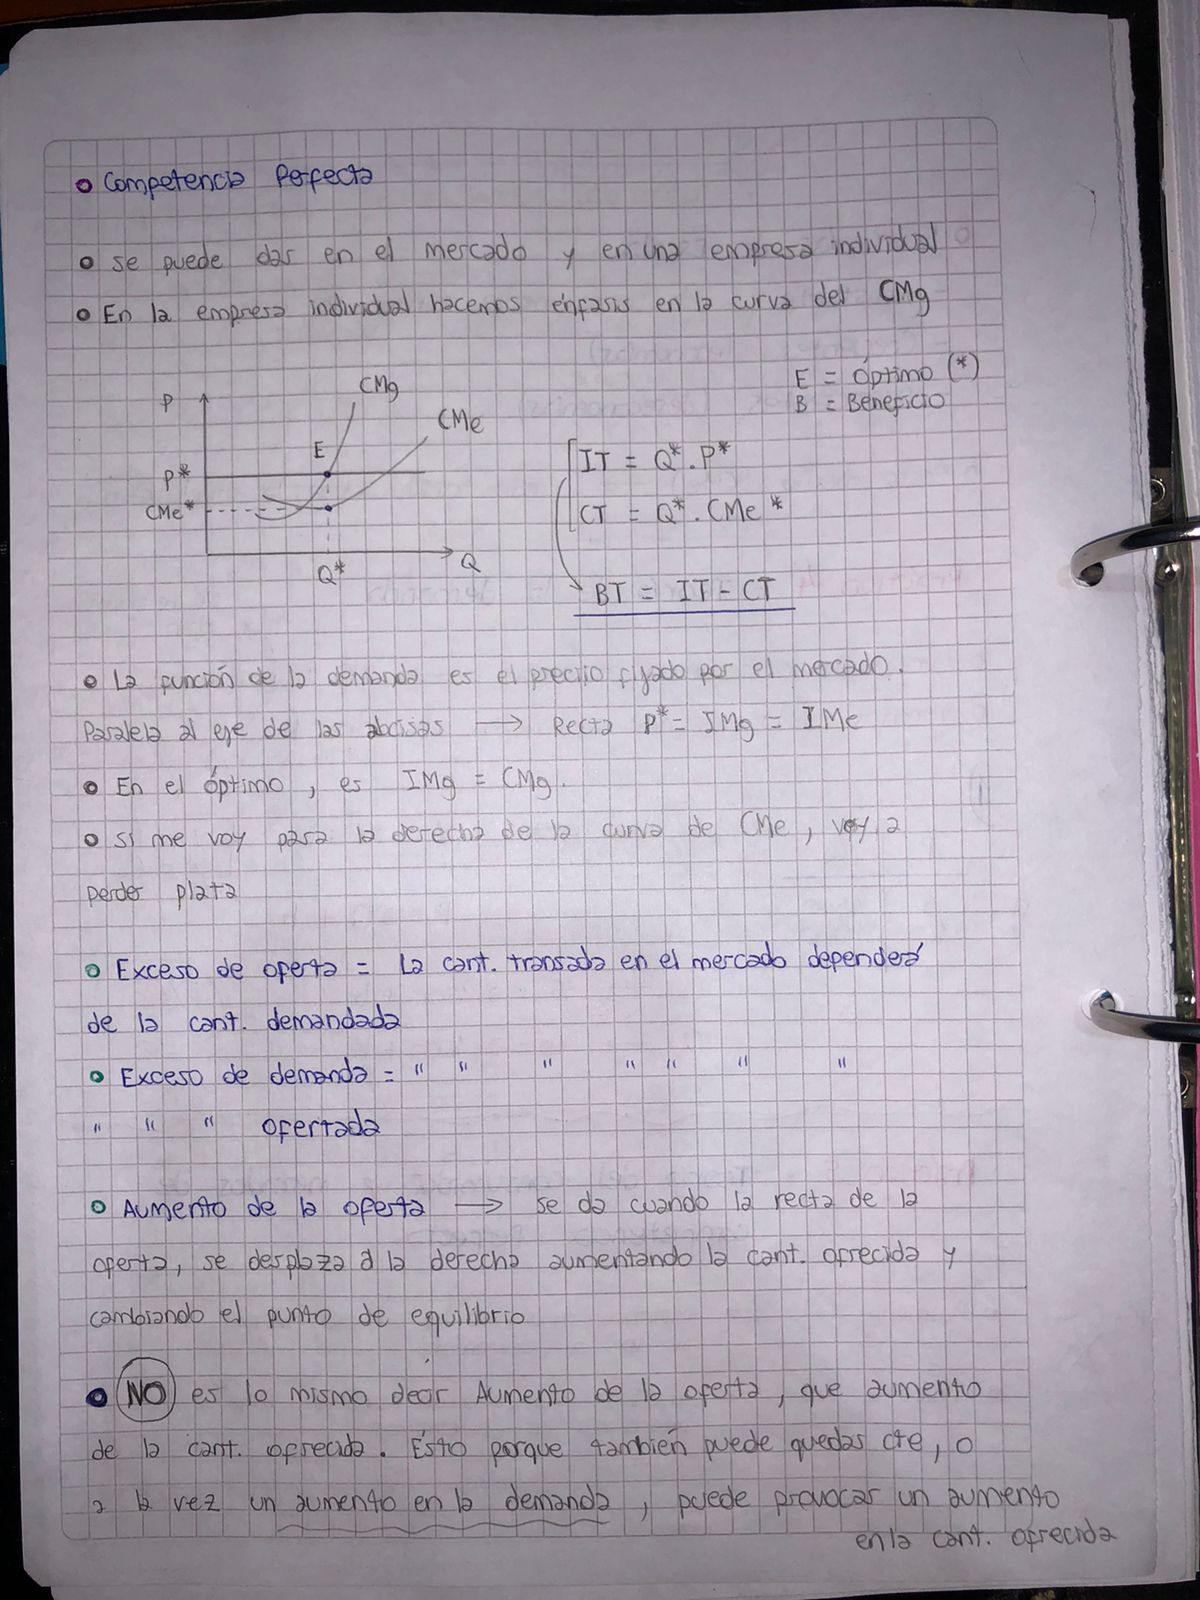 Competencia Perfecta
se puede dar en el mercado y en una empresa individual
En la empresa individual hacemos énfasis en la curva del CMg
E = Óptimo (*)
B = Beneficio
P
CMg
CMe
E
P*
CMe*
Q*
Q
IT = Q*.P*
CT = Q*.CMe*
BT = IT - CT
La función de la demanda es el precio fijado por el mercado.
Paralela al eje de las abcisas → Recta P* = IMg = IMe
En el óptimo, es IMg = CMg.
Si me voy para la derecha de la curva de CMe, voy a
perder plata
Exceso de oferta = La cant. transada en el mercado dependerá
de la cant. demandada
Exceso de demanda = " " " " " " "
" " " ofertada
Aumento de la oferta → se da cuando la recta de la
oferta, se desplaza a la derecha aumentando la cant. ofrecida y
cambiando el punto de equilibrio
NO es lo mismo decir Aumento de la oferta, que aumento
de la cant. ofrecida. Ésto porque también puede quedar cte, o
a la vez un aumento en la demanda, puede provocar un aumento
en la cant. ofrecida